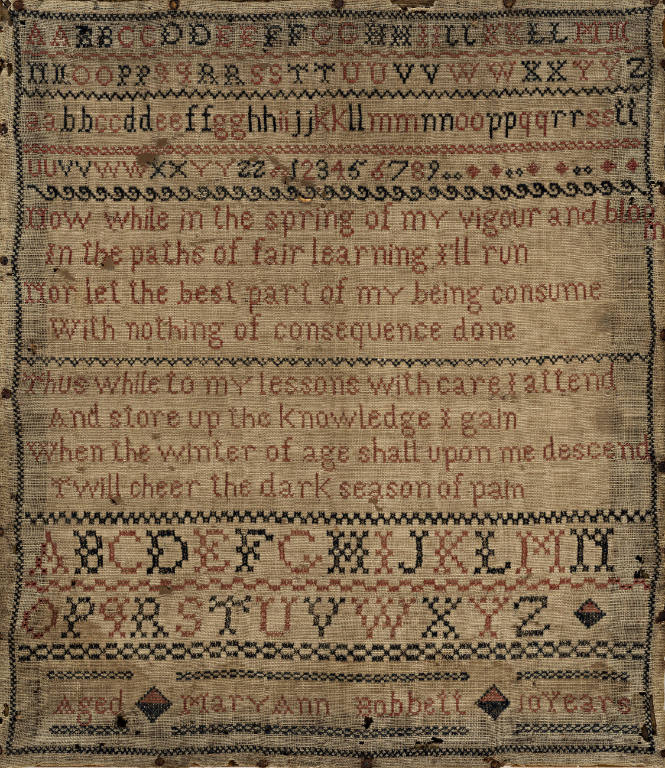 AABBCCDDEEFFGGHHIIJJKKLLMM
NNOOPPQQRRSSTTUUVVWWXXYYZ
aabbccddeeffgghhiijjkkllmmnnooppqqrrsstt
UUVVWWXXYYZZ 123456789
Now while in the spring of my vigour and bloo
m
In the paths of fair learning I'll run
Nor let the best part of my being consume
With nothing of consequence done
Thus while to my lessons with care I attend
And store up the knowledge I gain
When the winter of age shall upon me descend
Twill cheer the dark season of pain
ABCDEFGHIJKLMN
OPQRSTUVWXYZ
Aged Mary Ann Bobbett 10 Years